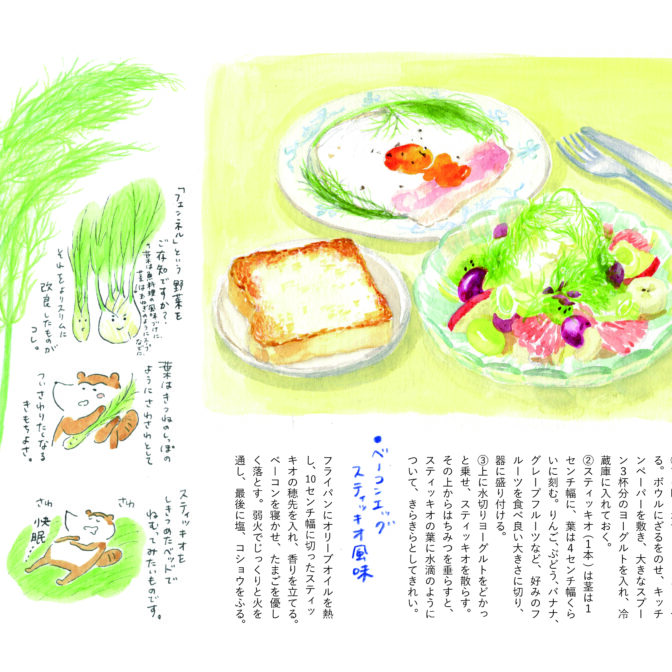 る。ボウルにざるをのせ、キッチ
ンペーパーを敷き、大きなスプー
ン3杯分のヨーグルトを入れ、冷
蔵庫に入れておく。
②スティッキオ(1本)は茎は1
センチ幅に、葉は4センチ幅くら
いに刻む。りんご、ぶどう、バナナ、
グレープフルーツなど、好みのフ
ルーツを食べ良い大きさに切り、
器に盛り付ける。
③上に水切りヨーグルトをどかっ
と乗せ、スティッキオを散らす。
その上からはちみつを垂らすと、
スティッキオの葉に水滴のように
ついて、きらきらとしてきれい。
●ベーコンエッグ
スティッキオ風味
フライパンにオリーブオイルを熱
し、10センチ幅に切ったスティッ
キオの穂先を入れ、香りを立てる。
ベーコンを寝かせ、たまごを優し
く落とす。弱火でじっくりと火を
通し、最後に塩、コショウをふる。
「フェンネル」という野菜を
ご存知ですか？
葉は魚料理の風味づけに、
茎はたまねぎのようにスープ
などに
それをよりスリムに
改良したものが
コレ。
葉はきつねのしっぽの
ようにさわさわとして
ついさわりたくなる
きもちよさ。
スティッキオを
しきつめたベッドで
ねむってみたいものです。
さわ
さわ
快眠…